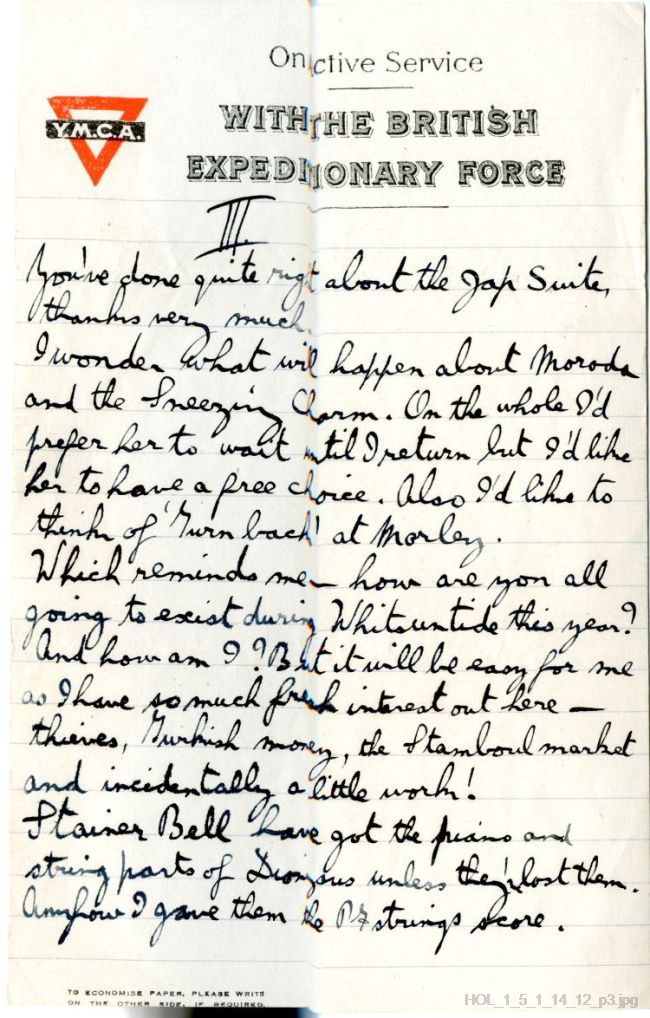 On Active Service
Y.M.C.A.
WITH THE BRITISH
EXPEDITIONARY FORCE
III.
You've done quite right about the Jap Suite,
thanks very much.
I wonder what will happen about Moroda
and the Sneezing Charm. On the whole I'd
prefer her to wait until I return but I'd like
her to have a free choice. Also I'd like to
think of 'Turn back' at Morley.
Which reminds me — how are you all
going to exist during Whitsuntide this year?
And how am I? But it will be easy for me
as I have so much fresh interest out here —
thieves, Turkish money, the Stamboul market
and incidentally a little work!
Stainer Bell have got the piano and
string parts of Dionysus unless they've lost them.
Anyhow I gave them the strings score.
TO ECONOMISE PAPER, PLEASE WRITE
ON THE OTHER SIDE, IF REQUIRED.
HOL_1_5_1_14_12_p3.jpg